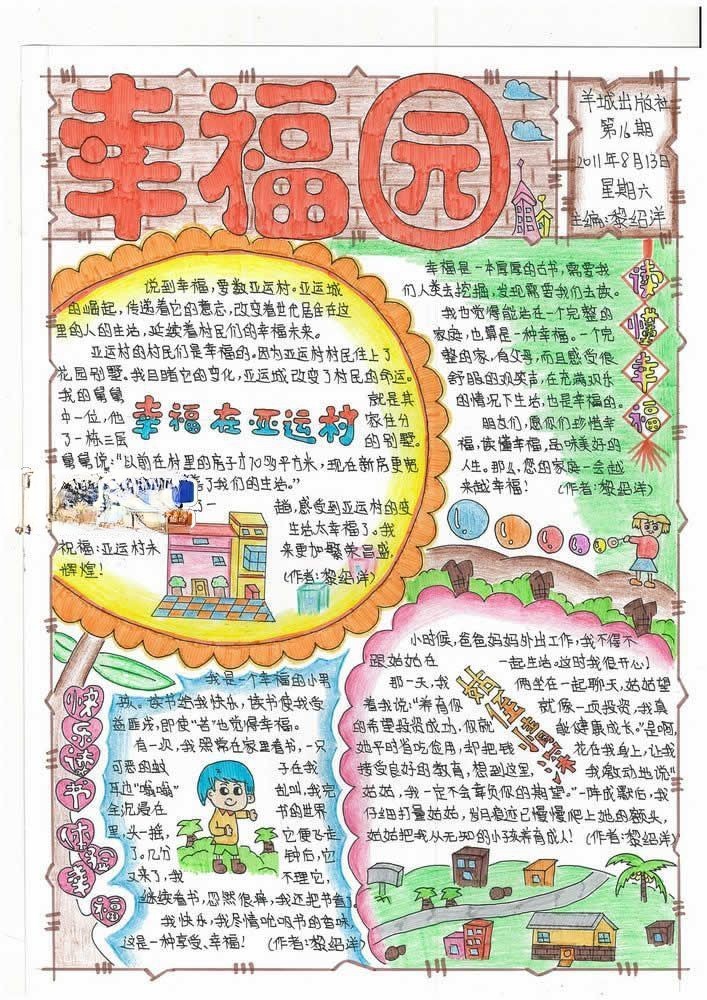 幸福园
羊城出版社
第16期
2011年8月13日
星期六
主编:黎绍洋
说到幸福,要数亚运村。亚运城
的崛起,传递着它的意志,改变着世代居住在这
里的人的生活,延续着村民们的幸福未来。
亚运村的村民们是幸福的。因为亚运村村民住上了
花园别墅。我目睹它的变化,亚运城改变了村民的命运。
我的舅舅 就是其
中一位,他 家住分
了一栋三层 的别墅。
幸福在亚运村
舅舅说:“以前在村里的房子才70多平方米,现在新房更宽
了我们的生活。”
了一 趟,感受到亚运村的变
生活太幸福了。我
祝福:亚运村未 来更加繁荣昌盛,
辉煌! (作者:黎绍洋)
读懂幸福
幸福是一本厚厚的古书,需要我
们人类去挖掘,发现需要我们去做。
我也觉得能活在一个完整的
家庭,也算是一种幸福。一个完
整的家,有父母,而且感受很
舒服的欢笑声,在充满欢乐
的情况下生活,也是幸福的。
朋友们,愿你们珍惜幸
福,读懂幸福,品味美好的
人生。那么,您的家庭一会越
来越幸福! (作者:黎绍洋)
快乐读书 体验幸福
我是一个幸福的小男
孩。读书给我快乐,读书使我受
益匪浅,即使“苦”也觉得幸福。
有一次,我照常在家里看书,一只
可恶的蚊 子在我
耳边“嗡嗡” 乱叫,我完
全沉浸在 书的世界
里,头一摇, 它便飞走
了。几分 钟后,它
又来了,我 不理它,
继续看书,忽然很痒,我还把书看了。
我快乐,我尽情吮吸书的香味,
这是一种享受、幸福! (作者:黎绍洋)
小时候,爸爸妈妈外出工作,我不得不
跟姑姑在 一起生活。这时我很开心!
那一天,我 俩坐在一起聊天,姑姑望
着我说:“养育你 就像一项投资,我真
的希望投资成功,你就 能健康成长。”是啊,
她平时省吃俭用,却把钱 花在我身上,让我
接受良好的教育,想到这里, 我激动地说“
姑姑,我一定不会辜负你的期望。”一阵感歇后,我
仔细打量姑姑,岁月痕迹已慢慢爬上她的额头,
姑姑把我从无知的小孩养育成人! (作者:黎绍洋)